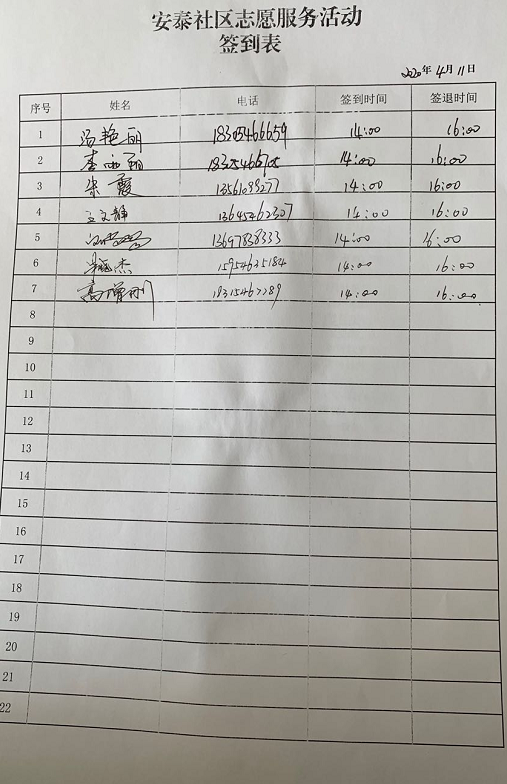 安泰社区志愿服务活动
签到表
2020年4月11日
序号 姓名 电话 签到时间 签退时间
1 冯艳丽 18305466659 14:00 16:00
2 李 14:00 16:00
3 朱霞 13561099277 14:00 16:00
4 王文静 13645462307 14:00 16:00
5 13697838333 14:00 16:00
6 杰 15954625184 14:00 16:00
7 高增刚 18315467289 14:00 16:00
8
9
10
11
12
13
14
15
16
17
18
19
20
21
22